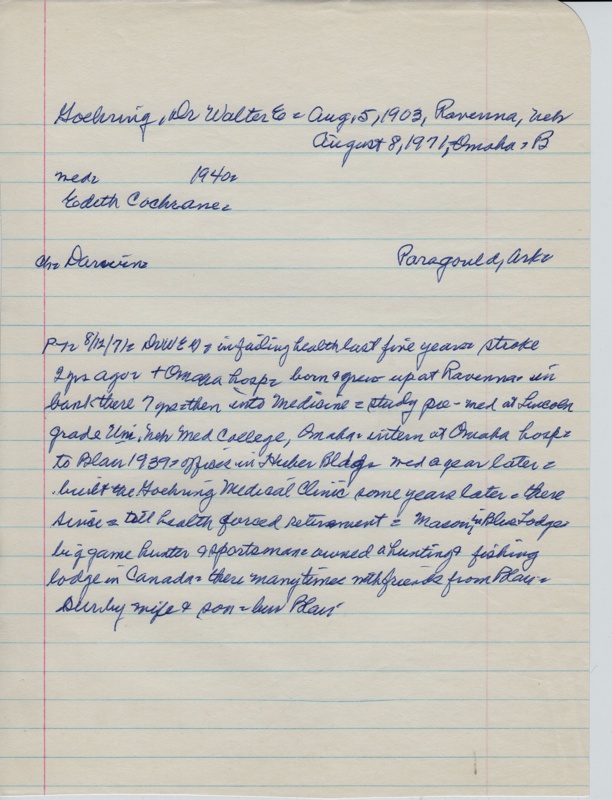 Goehring, Dr Walter E = Aug, 5, 1903, Ravenna, Neb
August 8, 1971, Omaha = B
med = 1940 =
Edith Cochrane =
ch = Darwin = Paragould, Ark =
P-T = 8/12/71 = Dr W E G = in failing health last five years = stroke
2 yrs ago = + Omaha hosp = born & grew up at Ravenna = in
bank there 7 yrs = then into medicine = study pre-med at Lincoln
grad Uni, Neb Med College, Omaha = intern at Omaha hosp =
to Blair 1939 = office in Huber Bldg = med a year later =
built the Goehring Medical Clinic some years later = there
since = till health forced retirement = Mason, in Blue Lodge =
big game hunter & sportsman = owned a hunting & fishing
lodge in Canada = there many times with friends from Blair =
Surv by wife & son = bur Blair